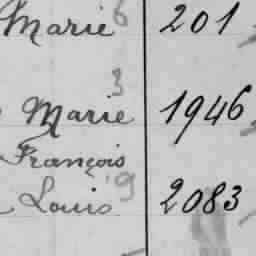 Marie 6 201
3
Marie 1946
François
Louis 9 2083